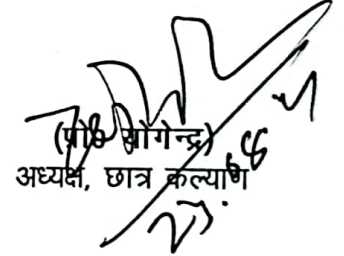 (प्रो० योगेन्द्र)
अध्यक्ष, छात्र कल्याण